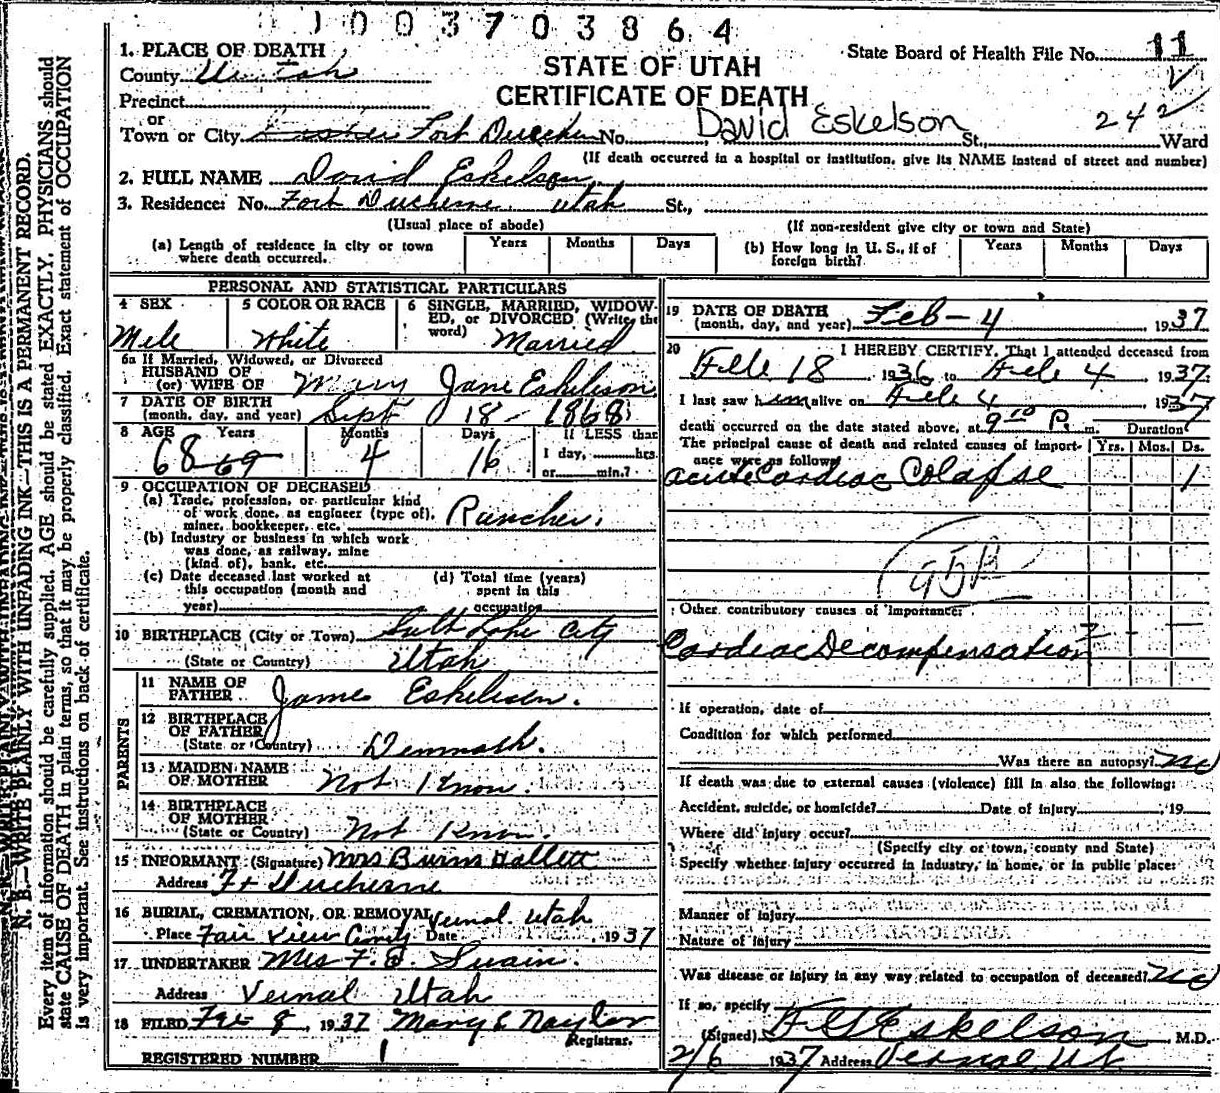 0 0 3 7 0 3 8 6 4
1. PLACE OF DEATH
County Uintah
Precinct
or
Town or City Fort Duchesne No. St., Ward
STATE OF UTAH
CERTIFICATE OF DEATH
State Board of Health File No. 11
David Eskelson
242
(If death occurred in a hospital or institution, give its NAME instead of street and number)
2. FULL NAME David Eskelson
3. Residence: No. Fort Duchesne Utah St.,
(Usual place of abode)
(If non-resident give city or town and State)
(a) Length of residence in city or town where death occurred. Years Months Days
(b) How long in U. S., if of foreign birth? Years Months Days
PERSONAL AND STATISTICAL PARTICULARS
4 SEX
Male
5 COLOR OR RACE
White
6 SINGLE, MARRIED, WIDOWED, or DIVORCED (Write the word)
Married
6a If Married, Widowed, or Divorced
HUSBAND OF
(or) WIFE OF Mary Jane Eskelson
7 DATE OF BIRTH
(month, day, and year) Sept 18 - 1868
8 AGE Years Months Days If LESS than
68 69 4 16 1 day, hrs.
or min.?
9 OCCUPATION OF DECEASED
(a) Trade, profession, or particular kind of work done, as engineer (type of), miner, bookkeeper, etc. Rancher.
(b) Industry or business in which work was done, as railway, mine (kind of), bank, etc.
(c) Date deceased last worked at this occupation (month and year)
(d) Total time (years) spent in this occupation
10 BIRTHPLACE (City or Town) Salt Lake City
(State or Country) Utah
PARENTS
11 NAME OF FATHER James Eskelson.
12 BIRTHPLACE OF FATHER
(State or Country) Denmark.
13 MAIDEN NAME OF MOTHER Not Know.
14 BIRTHPLACE OF MOTHER
(State or Country) Not Know.
15 INFORMANT (Signature) Mrs Burns Hallett
Address Ft Duchesne
16 BURIAL, CREMATION, OR REMOVAL Vernal Utah
Place Fair View Date 1937
17 UNDERTAKER Mrs F. E. Swain.
Address Vernal Utah
18 FILED Feb 8, 1937 Mary E Naylor
Registrar.
REGISTERED NUMBER 1
19 DATE OF DEATH
(month, day, and year) Feb - 4 1937
20 I HEREBY CERTIFY, That I attended deceased from
18 1936 to 4 1937
I last saw him alive on 4 1937
death occurred on the date stated above, at 9 10 P. m. Duration
The principal cause of death and related causes of importance were as follows Yrs. Mos. Ds.
acute Cardiac Colapse 1
95B
Other contributory causes of importance:
Cardiac Decompensation
If operation, date of
Condition for which performed
Was there an autopsy? No
If death was due to external causes (violence) fill in also the following:
Accident, suicide, or homicide? Date of injury , 19
Where did injury occur?
(Specify city or town, county and State)
Specify whether injury occurred in industry, in home, or in public place:
Manner of injury
Nature of injury
Was disease or injury in any way related to occupation of deceased? No
If so, specify
(Signed) Eskelson, M.D.
2/6 1937 Address Vernal, Ut.
N. B.—WRITE PLAINLY WITH UNFADING INK—THIS IS A PERMANENT RECORD.
Every item of information should be carefully supplied. AGE should be stated EXACTLY. PHYSICIANS should
state CAUSE OF DEATH in plain terms, so that it may be properly classified. Exact statement of OCCUPATION
is very important. See instructions on back of certificate.